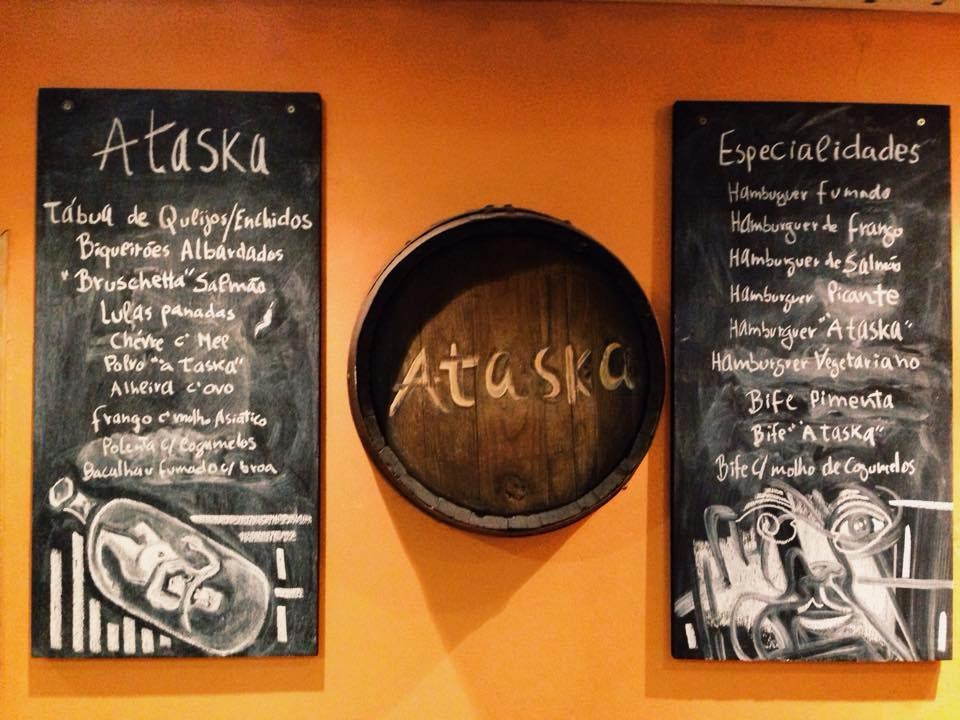 Ataska
Tábua de Queijos/Enchidos
Biqueirões Albardados
"Bruschetta" Salmão
Lulas panadas
Chévre c' Mel
Polvo "à Taska"
Alheira c'ovo
frango c'molho Asiático
Polenta c/ Cogumelos
Bacalhau fumado c/ broa
Ataska
Especialidades
Hamburguer fumado
Hamburguer de frango
Hamburguer de Salmão
Hamburguer Picante
Hamburguer "Ataska"
Hamburgrer Vegetariano
Bife Pimenta
Bife "Ataska"
Bife c/ molho de Cogumelos